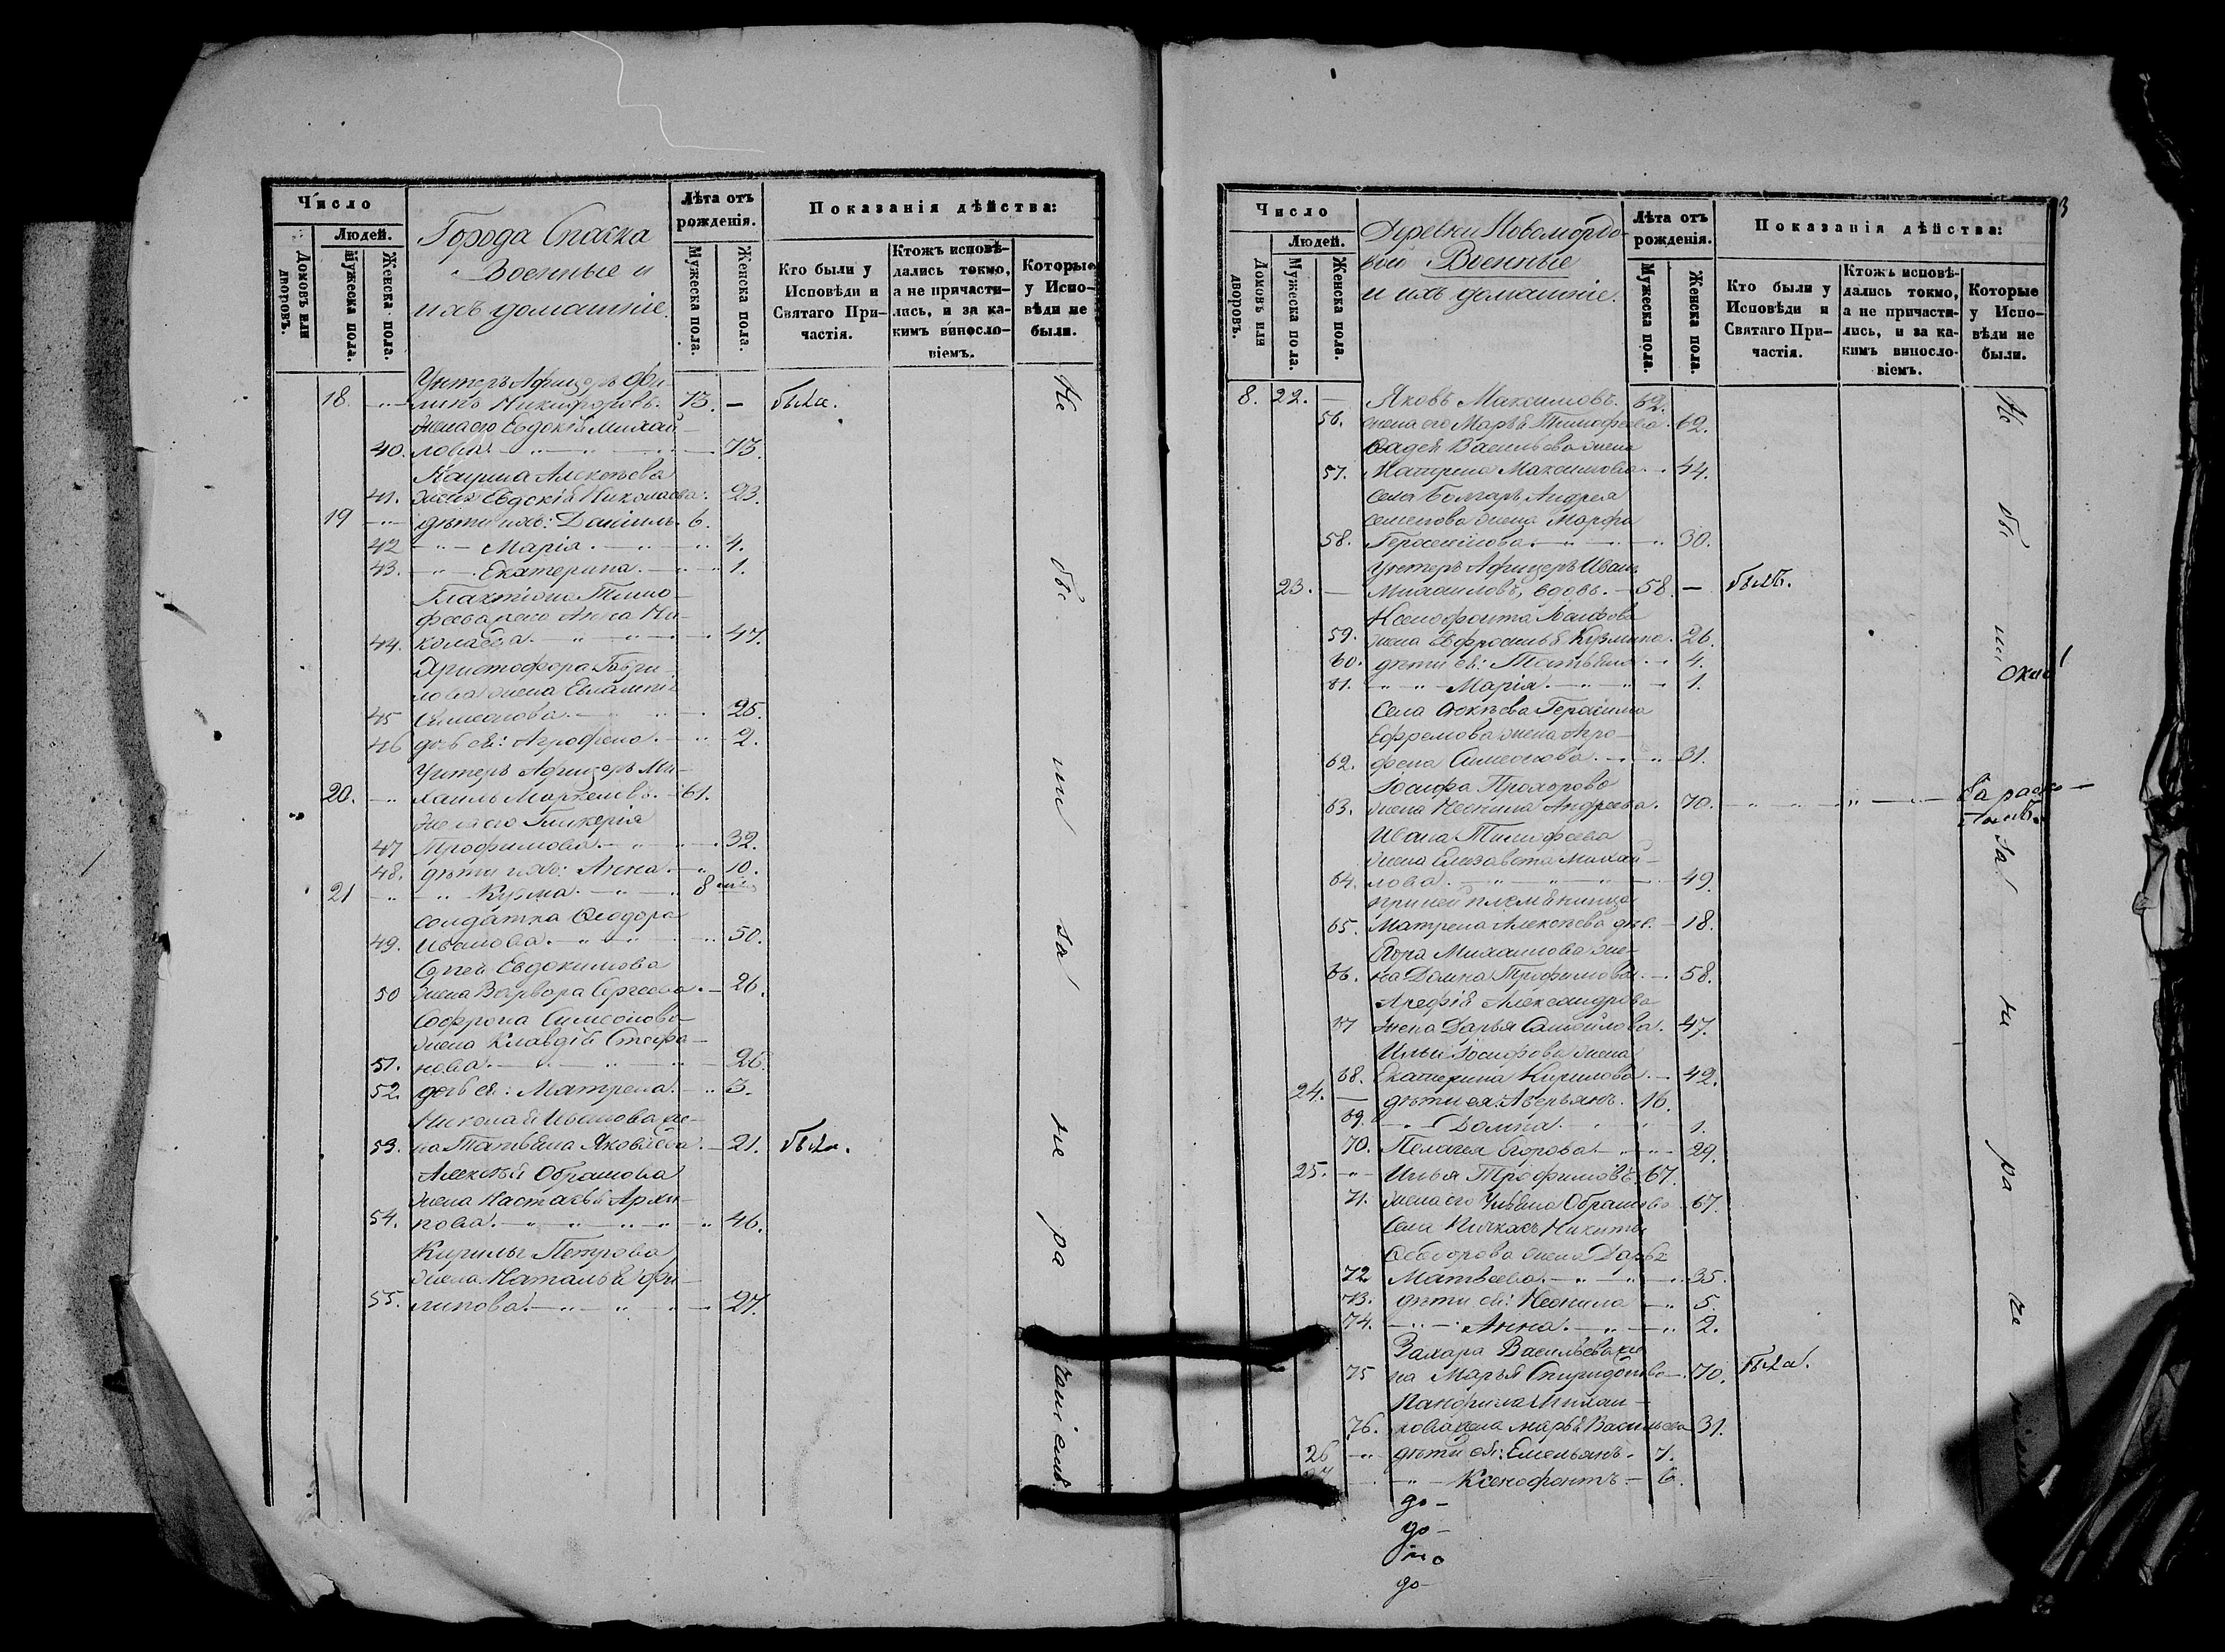 Число
Людей.
Домовъ или дворовъ.
Мужеска пола.
Женска пола.
Города Спаска
Военные и
ихъ домашніе.
Лѣта отъ рожденія.
Мужеска пола.
Женска пола.
Показанія дѣйства:
Кто были у Исповѣди и Святаго Причастія.
Ктожъ исповѣдались токмо, а не причастились, и за какимъ винословіемъ.
Которые у Исповѣди не были.
Унтеръ Афицеръ Фи-
18. липъ Никифоровъ. 73. — была.
жена его Евдокія Михай-
40. лова. 73.
Алексѣева
41. жена Евдокія Николаева. 23.
19 дѣти ихъ: Даніилъ. 6.
42 Марія. 4.
43. Екатерина. 1.
Тимо-
феева жена Анна Ни-
44. колаева. 47.
Христофора Гаври-
лова жена Евлампія
45 Симеонова. 25.
46 дочь ея: Агрофена. 2.
Унтеръ Афицеръ Ми-
20. хаилъ Маркеловъ. 61.
жена его Гликерія
47 Трофимова. 32.
48. дѣти ихъ: Анна. 10.
21 Кузма. 8
солдатка Ѳеодора
49. Иванова. 50.
Сергей Евдокимова
50 жена Варвара Сергеева. 26.
Софрона Симеонова
жена Клавдія Стефа-
51. нова. 26.
52. дочь ея: Матрена. 3.
Николай Иванова же-
53. на Татьяна Яковлева. 21. была.
Алексѣй Обрамова
жена Настасья Архи-
54. пова. 46.
Кирилы Петрова
жена Наталья Фи-
55. липова. 27.
Не бы ли за не ра че ніемъ
3
Число
Людей.
Домовъ или дворовъ.
Мужеска пола.
Женска пола.
Деревни Новомордо-
вои Военные
и ихъ домашніе.
Лѣта отъ рожденія.
Мужеска пола.
Женска пола.
Показанія дѣйства:
Кто были у Исповѣди и Святаго Причастія.
Ктожъ исповѣдались токмо, а не причастились, и за какимъ винословіемъ.
Которые у Исповѣди не были.
8. 22. — Яковъ Максимовъ. 62.
56. жена его Марья Тимофеева. 62.
Фадея Васильева жена
57. Матрена Максимова. 44.
Села Болгаръ Андрея
Семенова жена Марфа
58. Герасимова. 30.
Унтеръ Афицеръ Иванъ
23. — Михаиловъ, вдовъ. 58. — былъ.
Ксенофонта
59. жена Ефросинья Кузмина. 26.
60. дѣти ея: Татьяна. 4.
61. Марія. 1.
Села Герасима
Ефремова жена Агро-
62. фена Симеонова. 31.
Іосифа Прохорова
63. жена Неонила Андреева. 70.
Ивана Тимофеева
жена Елизавета Михай-
64. лова. 49.
при ней племянница
65. Матрена Алексѣева дѣв. 18.
Егора Михаилова же-
66. на Домна Трофимова. 58.
Арефій Александрова
67 жена Дарья Самойлова. 47.
Ильи Іосифова жена
68. Екатерина Кирилова. 42.
24. — дѣти ея: Аверьянъ. 16.
69. Домна. 1.
70. Пелагея Егорова. 29.
25. Илья Трофимовъ. 67.
71. жена его Ульяна Обрамова. 67.
Села Никиты
Ѳеодорова жена Дарья
72 Матвеева. 35.
73. дѣти ея: Неонила 5.
74. Анна. 2.
Захара Васильева же-
75 на Марья Спиридонова. 70. была.
Панфила Михаи-
76. лова жена Марья Васильева 31.
26 дѣти ея: Емельянъ. 7.
27 Ксенофонтъ 6.
до-
до-
до-
Не бы ли за не ра че